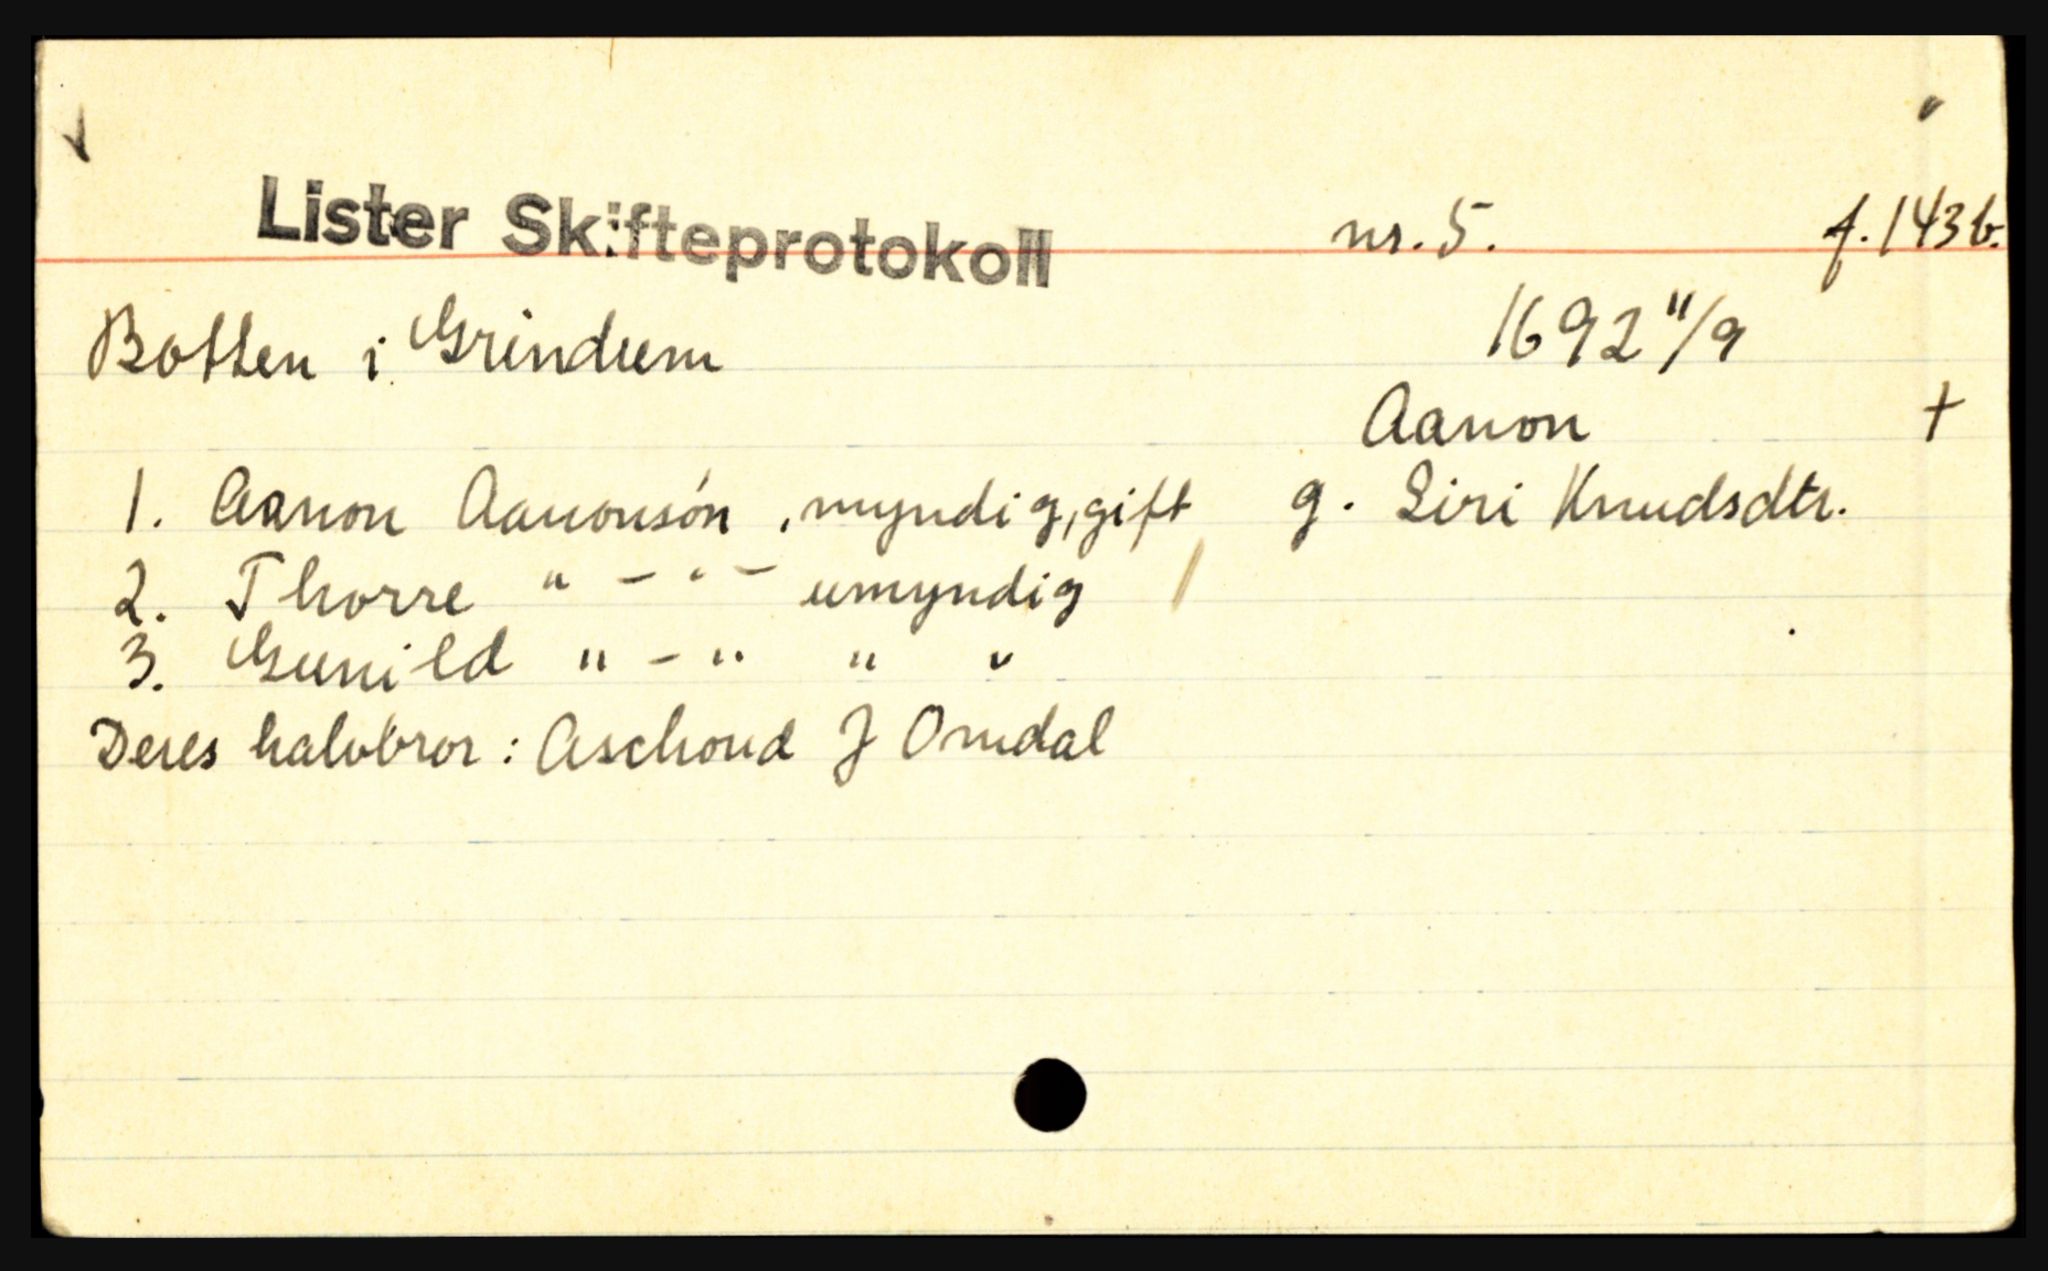 Lister Skifteprotokoll nr. 5. f. 143 b.
Botten i Grindum 1692 11/9
Aanon +
1. Aanon Aanonsøn, myndig, gift g. Siri Knudsdtr.
2. Thorre " - " - umyndig
3. Gunild " - " " "
Deres halvbror: Aschoud J Omdal